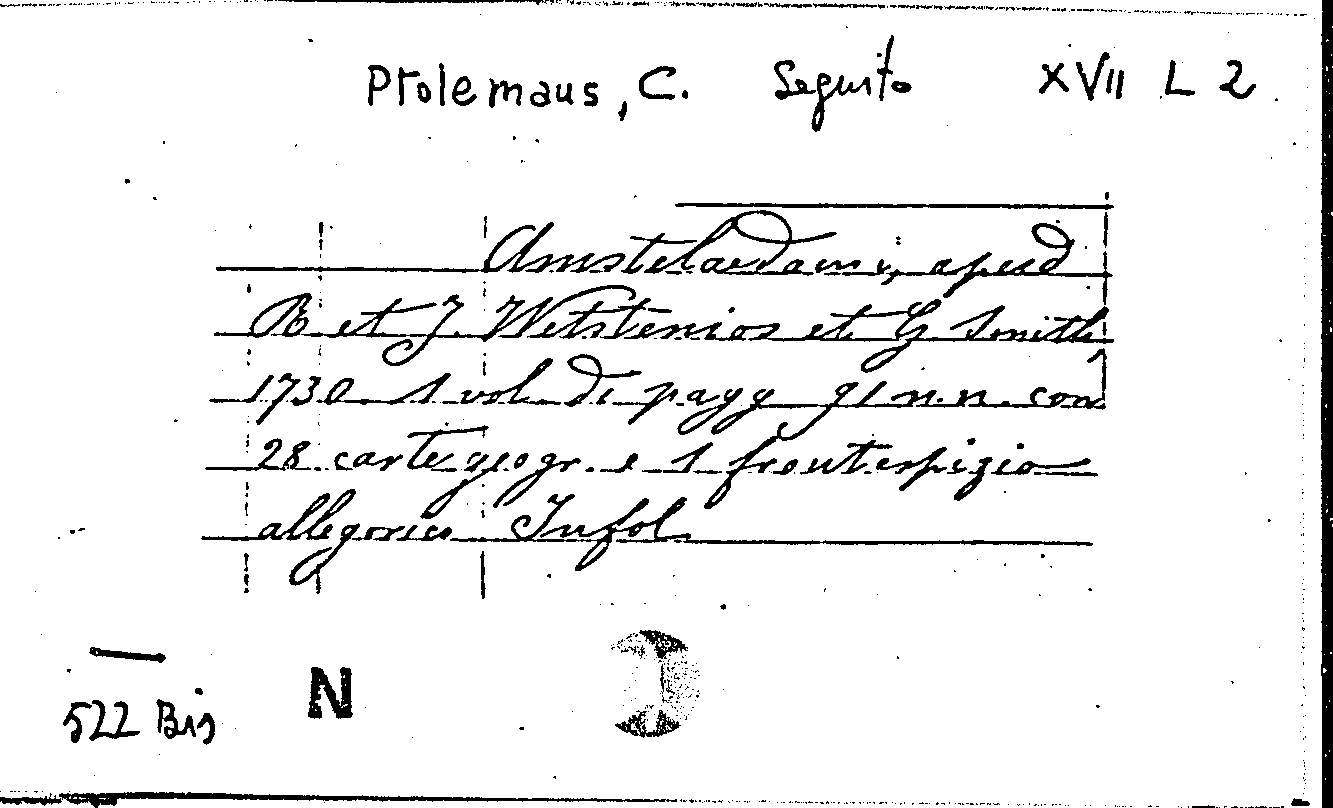 Ptolemaus, C. Seguito XVII L 2
Amstelaedami, apud
R et J. Wetstenios et G Smith,
1730 1 vol di pagg 91 n.n. con
28 carte geogr. e 1 frontespizio
allegorico In fol
522 Bis N